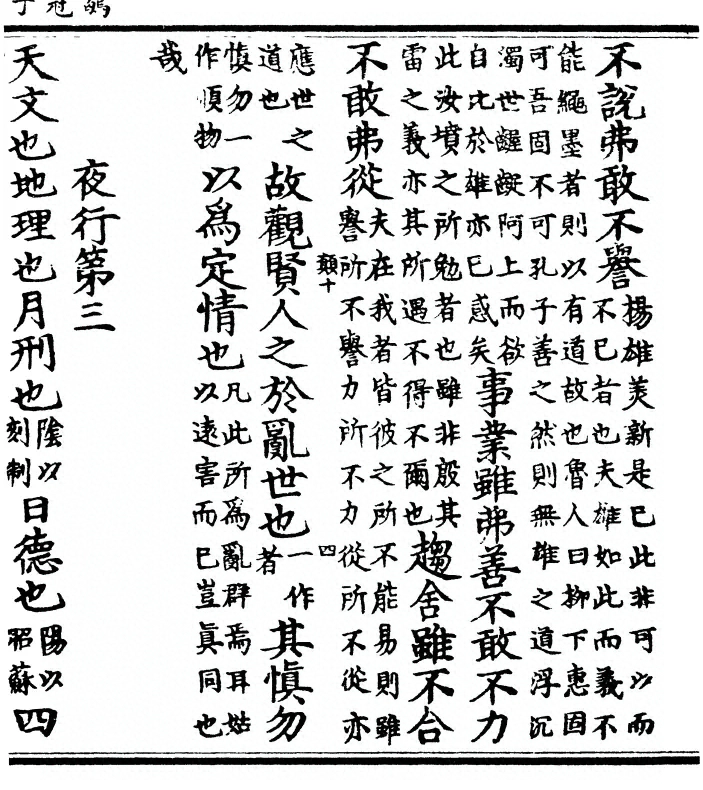 鶡冠子
不說弗敢不譽揚雄美新是已此非可以而不已者也夫雄如此而義不
能繩墨者則以有道故也魯人曰柳下惠固可吾固不可孔子善之然則無雄之道浮沉
濁世齷齪阿上而欲自比於雄亦已惑矣事業雖弗善不敢不力
此汝墳之所勉者也雖非殷其雷之義亦其所遇不得不爾也趨舍雖不合
不敢弗從夫在我者皆彼之所不能易則雖譽所不譽力所不力從所不從亦
顛十
四
應世之道也故觀賢人之於亂世也一作者其慎勿
慎勿一作順物以爲定情也凡此所爲亂群焉耳姑以遠害而已豈真同也
哉
夜行第三
天文也地理也月刑也陰以刻制日德也陽以昭蘇四